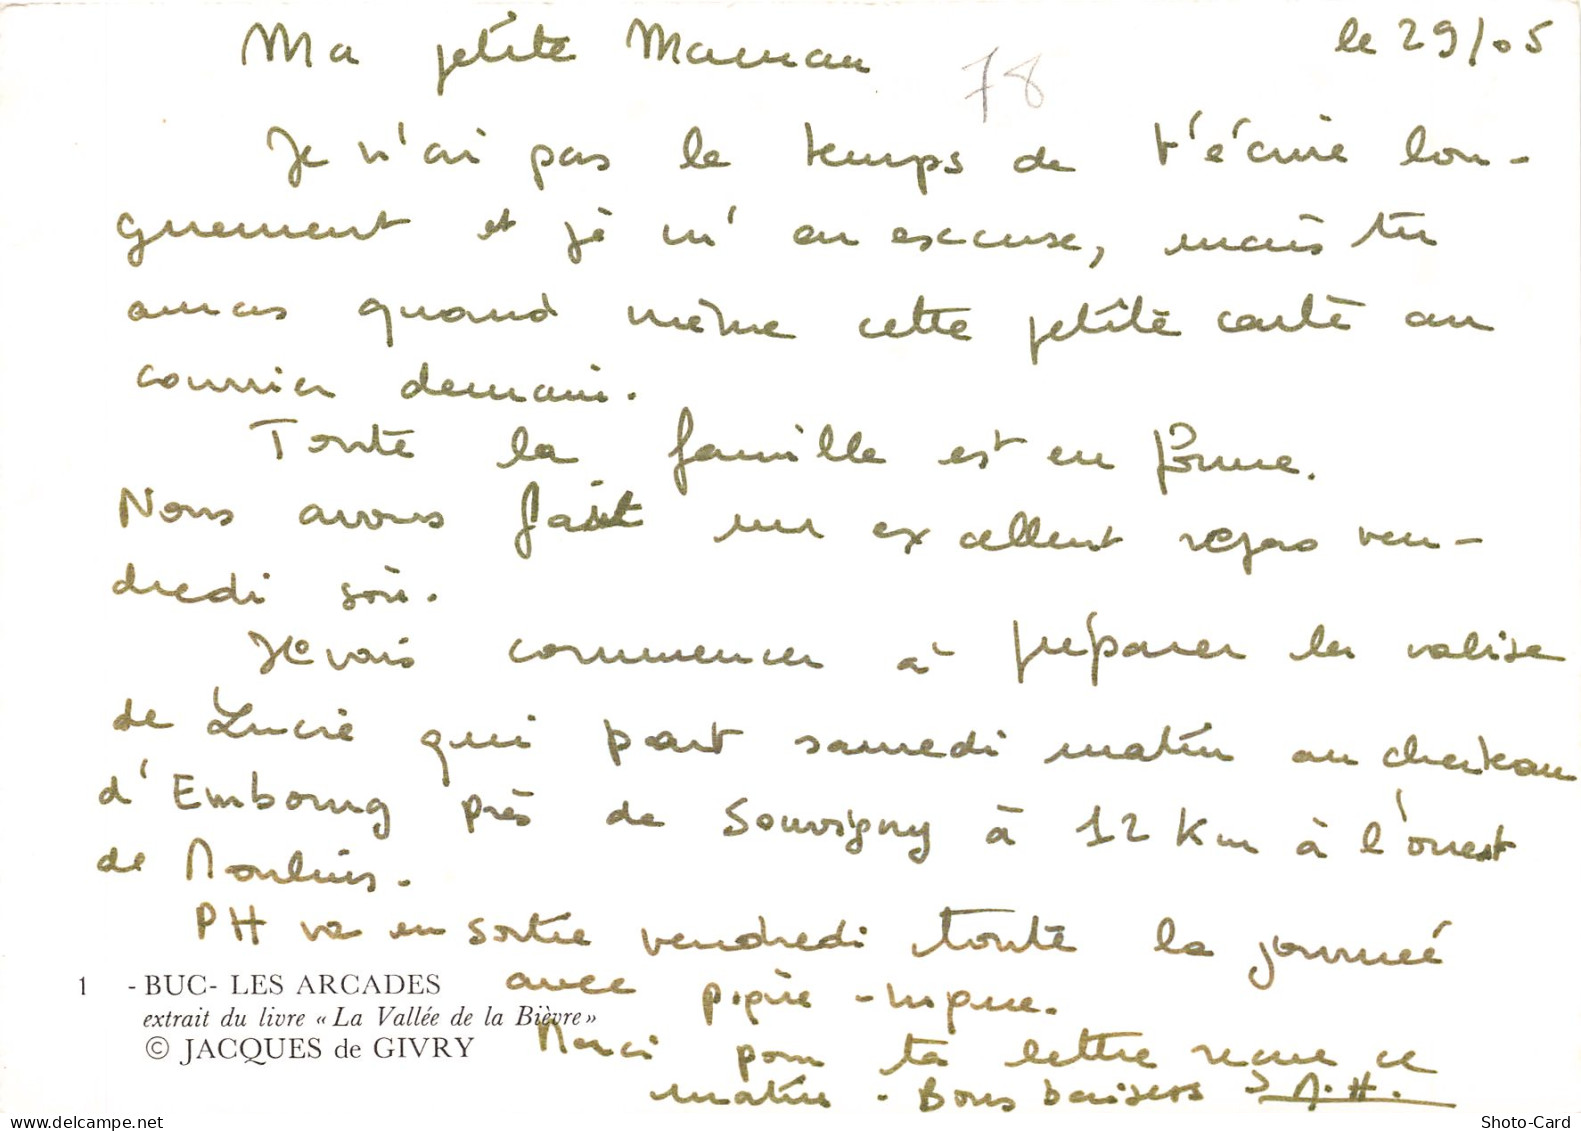 le 29/05
Ma petite Maman
78
Je n'ai pas le temps de t'écrire lon-
guement et je m'en excuse, mais tu
auras quand même cette petite carte au
courrier demain.
Toute la famille est en forme.
Nous avons fait un excellent repas ven-
dredi soir.
Je vais commencer à préparer la valise
de Lucie qui part samedi matin au chateau
d'Embourg près de Souvigny à 12 Km à l'ouest
de Moulins.
PH va en sortie vendredi toute la journée
avec pique-nique.
Merci pour ta lettre reçue ce
matin - Bons baisers
1 - BUC - LES ARCADES
extrait du livre « La Vallée de la Bièvre »
© JACQUES de GIVRY
Shoto-Card